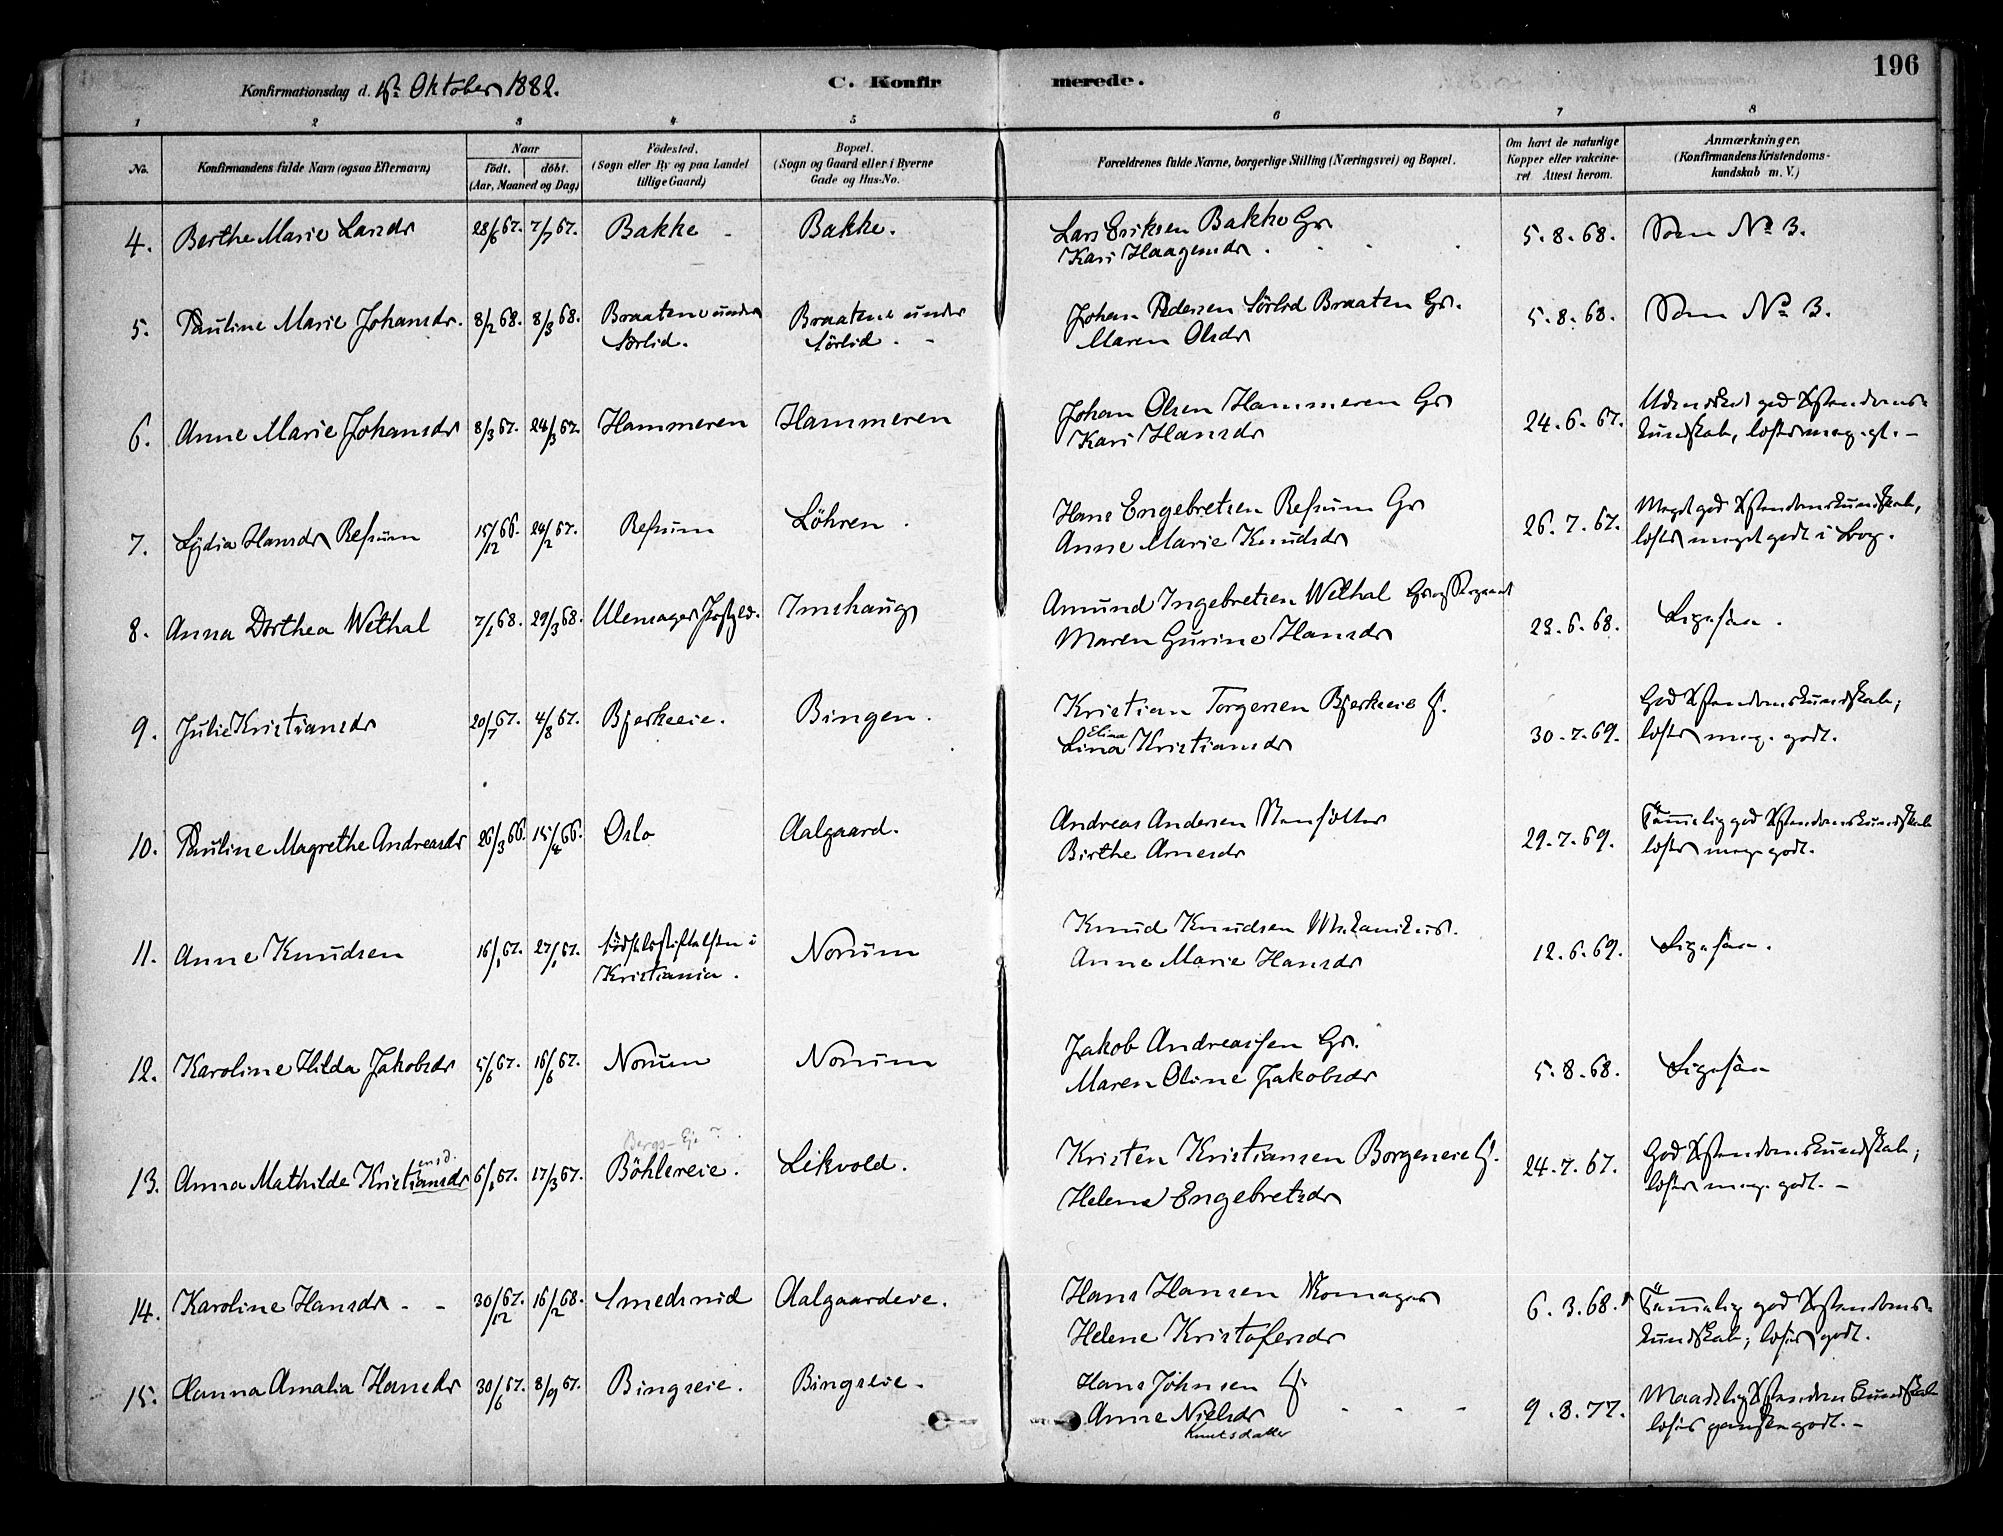 196
Konfirmationsdag d. Oktober 1882.
C. Konfirmerede.
1 2 3 4 5 6 7 8
No.
Konfirmandens fulde Navn (ogsaa Efternavn)
Naar
født. døbt.
(Aar, Maaned og Dag)
Fødested.
(Sogn eller By og paa Landet
tillige Gaard)
Bopæl.
(Sogn og Gaard eller i Byerne
Gade og Hus-No.
Forældrenes fulde Navne, borgerlige Stilling (Næringsvei) og Bopæl.
Om havt de naturlige
Kopper eller vakcine-
ret Attest herom.
Anmærkninger,
(Konfirmandens Kristendoms-
kundskab m. V.)
4. Berthe Marie Larsdr 28/6 67. 7/7 67. Bakke - Bakke. Lars Eriksen Bakke Gr 5.8.68. Som No 3.
Kari Haagensdr
5. Pauline Marie Johansdr. 8/2 68. 8/3 68. Braatene under Braatene under Johan Pedersen Sörlid Braaten Gr. 5.8.68. Som No 3.
Sörlid. Sörlid. Maren Olsdr
6. Anne Marie Johansdr 8/3 67. 24/3 67. Hammeren Hammeren Johan Olsen Hammeren Gr 24.6.67. Udmerket god Xstendoms-
Kari Hansdr kundskab, læser meg. gt. -
7. Lydia Hansdr Refsum 15/12 66. 24/2 67. Refsum Löhren. Hans Engebretsen Refsum Gr 26.7.67. Meget god Xstendomskundskab,
Anne Marie Knudsdr læser meget godt i Bog.
8. Anna Dorthea Wethal 7/1 68. 29/3 68. Ullensager Imshaug Amund Ingebretsen Wethal 23.6.68. Ligesaa.
Maren Gurine Hansdr
9. Julie Kristiansdr 20/7 67. 4/8 67. Bjerkeeie. Bingen. Kristian Torgersen Bjerkeeie 30.7.69. God Xstendomskundskab;
Elina
Lina Kristiansdr læser meg. godt.
10. Pauline Magrethe Andreasdr 26/3 66. 15/4 66. Oslo Aalgaard. Andreas Andersen 29.7.69. Temmelig god Xstendomskundskab
Birthe Arnesdr læser meg. godt.
11. Anne Knudsen 16/1 67. 27/1 67. Födselsstiftelsen i Norum Knud Knudsen Mekanikus. 12.6.69. Ligesaa.
Kristiania. Anne Marie Hansdr
12. Karoline Hilda Jakobsdr 5/6 67. 16/6 67. Norum Norum Jakob Andreassen Gr. 5.8.68. Ligesaa
Maren Oline Jakobsdr
Bergs-Eje?
ensd.
13. Anna Mathilde Kristiansdr 6/1 67. 17/3 67. Böhlereie. Likvold. Kristen Kristiansen Borgeneie 24.7.67. God Xstendomskundskab;
Helene Engebretsdr læser meg. godt. -
14. Karoline Hansdr - - 30/12 67. 16/2 68. Smedsrud Aalgaardeie. Hans Hansen Skomager 6.3.68. Temmelig god Xstendoms-
Helene Kristofersdr kundskab; læser godt.
15. Hanna Amalia Hansdr 30/6 67. 8/9 67. Bingseie. Bingseie. Hans Johnsen 9.8.77. Maadelig Xstendomskundskab
Anne Nielsdr læser ganske godt. -
Knutsdatter